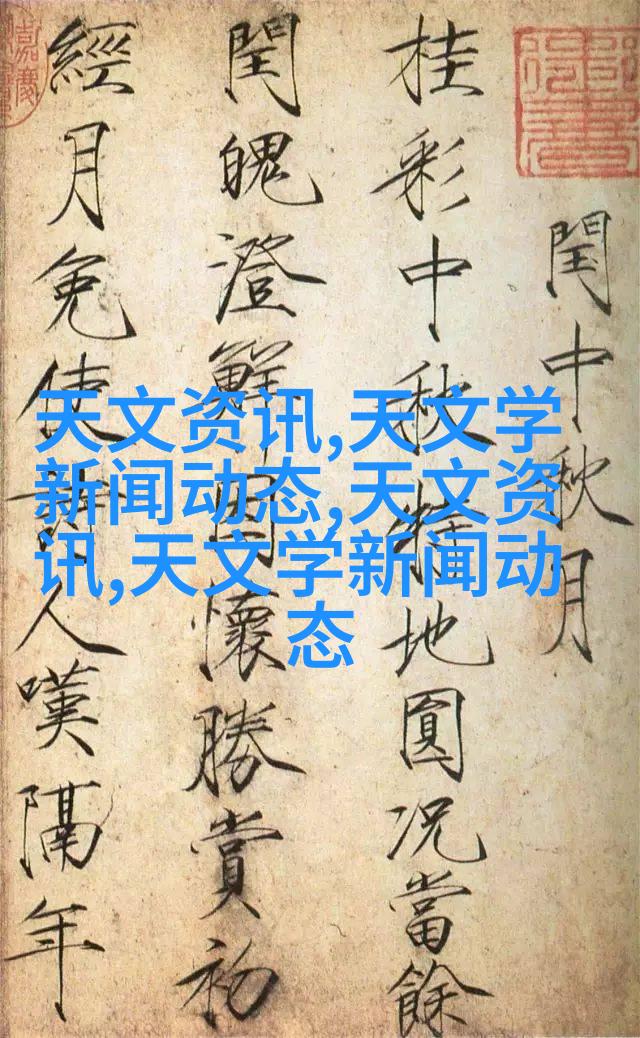 閏中秋月
桂彩中秋特地圓况當餘
閏魄澄鮮因懷勝賞初
經月免使詩人嘆隔年
天文资讯,天文学
新闻动态,天文资
讯,天文学新闻动
态